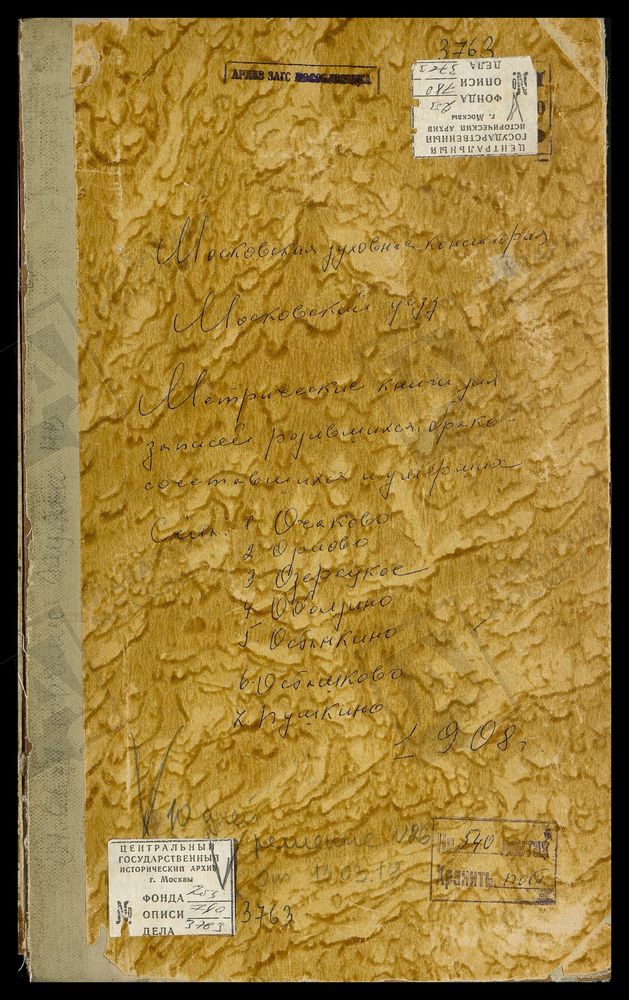 3763
АРХИВ ЗАГС МОСОБЛИСПОЛКОМА
ЦЕНТРАЛЬНЫЙ
ГОСУДАРСТВЕННЫЙ
ИСТОРИЧЕСКИЙ АРХИВ
г. Москвы
ФОНДА 203
№ ОПИСИ 780
ДЕЛА 3763
Московская духовная консистория
Московский уезд
Метрические книги для
записей родившихся, брако-
сочетавшихся и умерших
Сел. 1 Очаково
2 Орлово
3 Озерецкое
4 Оболдино
5 Останкино
6 Осташково
7 Пушкино
1908 г.
решение
от 13.05
№ 540 листах
Хранить
ЦЕНТРАЛЬНЫЙ
ГОСУДАРСТВЕННЫЙ
ИСТОРИЧЕСКИЙ АРХИВ
г. Москвы
ФОНДА 203
№ ОПИСИ 780
ДЕЛА 3763
3763